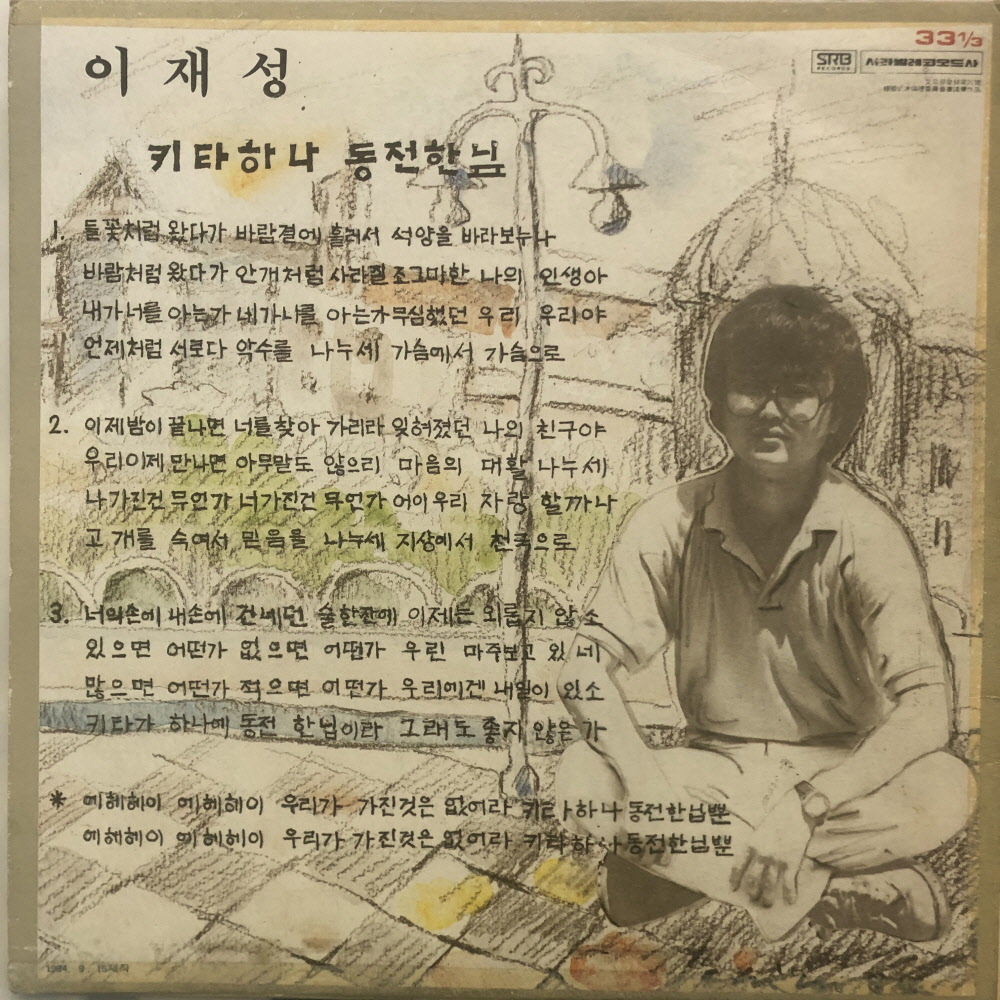 33 1/3
SRB
RECORDS
서라벌레코오드사
이재성
키타하나 동전한닢
1. 들꽃처럼 왔다가 바람결에 흘러서 석양을 바라보누나
바람처럼 왔다가 안개처럼 사라질 조그마한 나의 인생아
내가너를 아는가 네가나를 아는가 무심했던 우리 우리야
언제처럼 서로다 악수를 나누세 가슴에서 가슴으로
2. 이제밤이 끝나면 너를찾아 가리라 잊혀졌던 나의 친구야
우리이제 만나면 아무말도 않으리 마음의 대활 나누세
나가진건 무언가 너가진건 무언가 어이우리 자랑 할까나
고개를 숙여서 믿음을 나누세 지상에서 천국으로
3. 너의손에 내손에 건네던 술한잔에 이제는 외롭지 않소
있으면 어떤가 없으면 어떤가 우린 마주보고 있네
많으면 어떤가 적으면 어떤가 우리에겐 내일이 있소
키타가 하나에 동전 한닢이라 그래도 좋지 않은가
* 에헤헤이 에헤헤이 우리가 가진것은 없어라 키타하나 동전한닢뿐
에헤헤이 에헤헤이 우리가 가진것은 없어라 키타하나 동전한닢뿐
1984. 9. 15제작